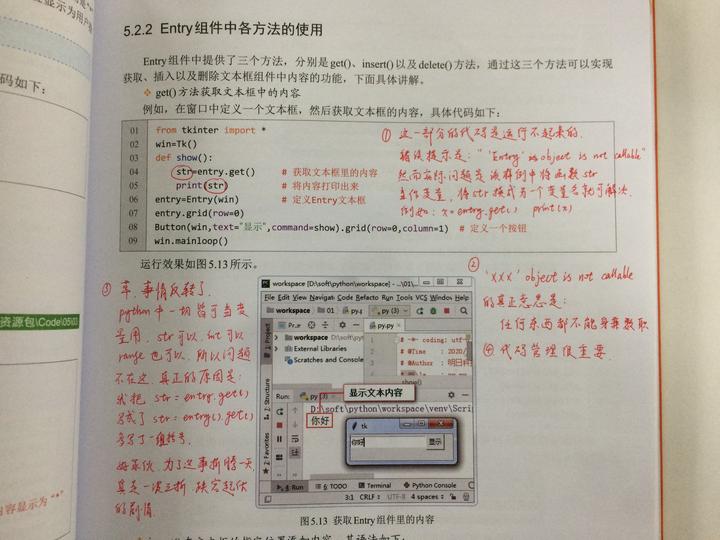 显示为用户
码如下：
资源包\Code\05\03
内容显示为 "*"
5.2.2 Entry组件中各方法的使用
Entry 组件中提供了三个方法，分别是get()、insert()以及delete()方法，通过这三个方法可以实现
获取、插入以及删除文本框组件中内容的功能，下面具体讲解。
❖ get()方法获取文本框中的内容
例如，在窗口中定义一个文本框，然后获取文本框的内容，具体代码如下：
01 from tkinter import *
02 win=Tk()
03 def show():
04 str=entry.get() # 获取文本框里的内容
05 print(str) # 将内容打印出来
06 entry=Entry(win) # 定义Entry文本框
07 entry.grid(row=0)
08 Button(win,text="显示",command=show).grid(row=0,column=1) # 定义一个按钮
09 win.mainloop()
① 这一部分的代码是运行不起来的.
错误提示是："'Entry' object is not callable"
然而实际问题是该样例中将函数 str
当作变量，将str换成另一个变量名就可解决.
例如：x=entry.get() print(x)
运行效果如图 5.13 所示。
② 'xxx' object is not callable
的真正意思是：
任何东西都不能身兼数职
④ 代码管理很重要.
③ 草，事情反转了.
python中一切皆可当变
量用，str可以，int可以
range也可以，所以问题
不在这，真正的原因是：
我把 str=entry.get()
写成了 str=entry().get()
多写了一组括号.
好家伙，为了这事折腾一天
真是一波三折，跌宕起伏
的剧情.
workspace [D:\soft\python\workspace] - ...\01\...
File Edit View Navigate Code Refactor Run Tools VCS Window Help
workspace 01 py-y py (3)
1: Project
workspace D:\soft\pytho
External Libraries
Scratches and Console
py-py
1 # -*- coding: utf-
2 # @Time : 2020/
3 # @Author : 明日科
show()
Run: py (3)
显示文本内容
D:\soft\python\workspace\venv\Scrip
你好
tk
你好 显示
7: Structure
2: Favorites
4: Run 6: TODO Terminal Python Console
3:1 CRLF UTF-8 4 spaces
图 5.13 获取 Entry 组件里的内容